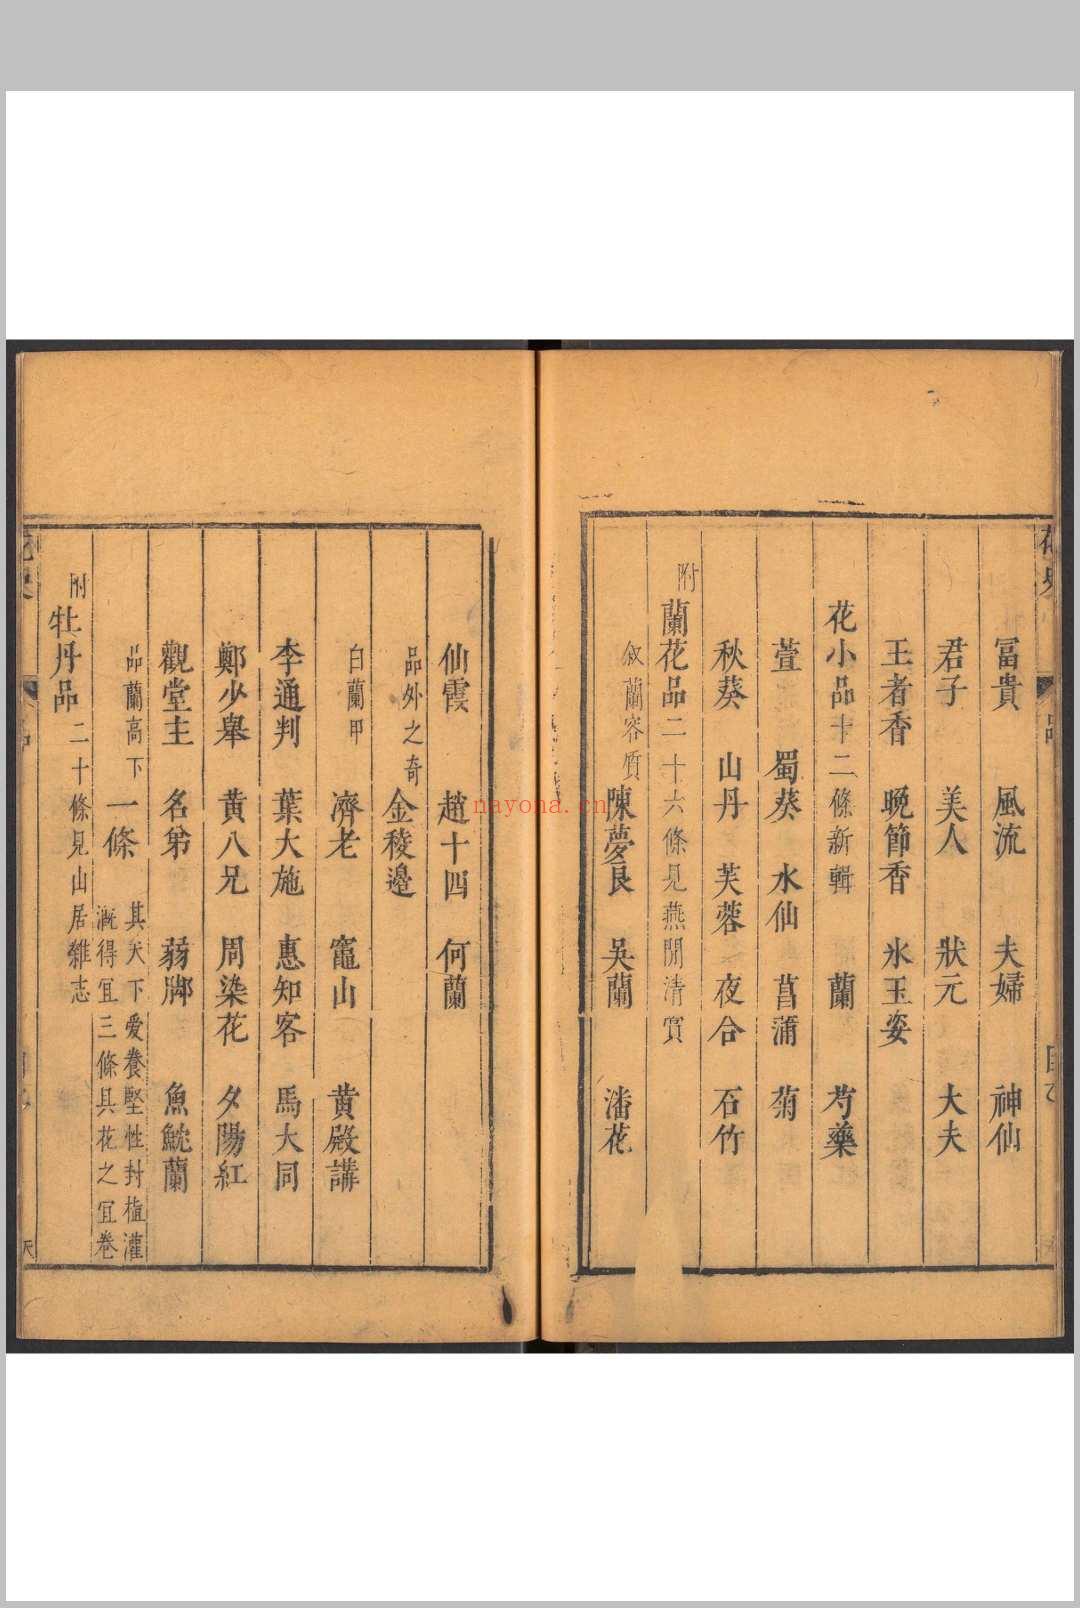 富貴 風流 夫婦 神仙
君子 美人 狀元 大夫
王者香 晚節香 氷玉姿
花小品十二條新輯 蘭 芍藥
萱 蜀葵 水仙 菖蒲 菊
秋葵 山丹 芙蓉 夜合 石竹
附蘭花品二十六條見燕閒清賞
敘蘭容質 陳夢良 吳蘭 潘花
仙霞 趙十四 何蘭
品外之奇 金稜邊
白蘭甲 濟老 竈山 黃殿講
李通判 葉大施 惠知客 馬大同
鄭少舉 黃八兄 周染花 夕陽紅
觀堂主 名弟 蒻脚 魚魫蘭
品蘭高下 一條 其天下愛養堅性封植灌
溉得宜三條具花之宜卷
附牡丹品二十條見山居雜志
nayona.cn